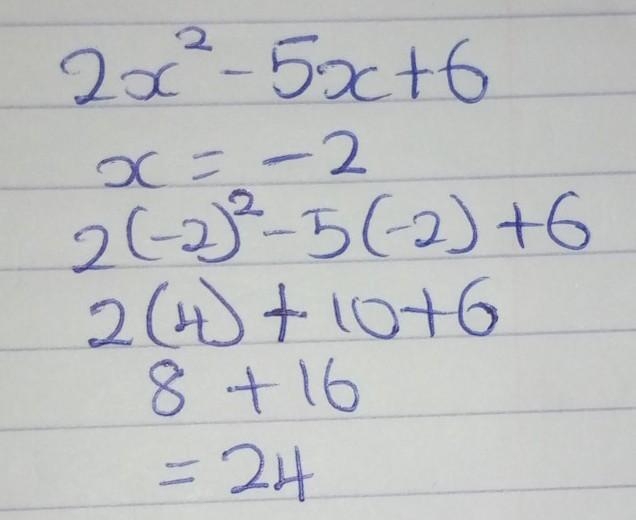 2x² - 5x + 6
x = -2
2(-2)² - 5(-2) + 6
2(4) + 10 + 6
8 + 16
= 24